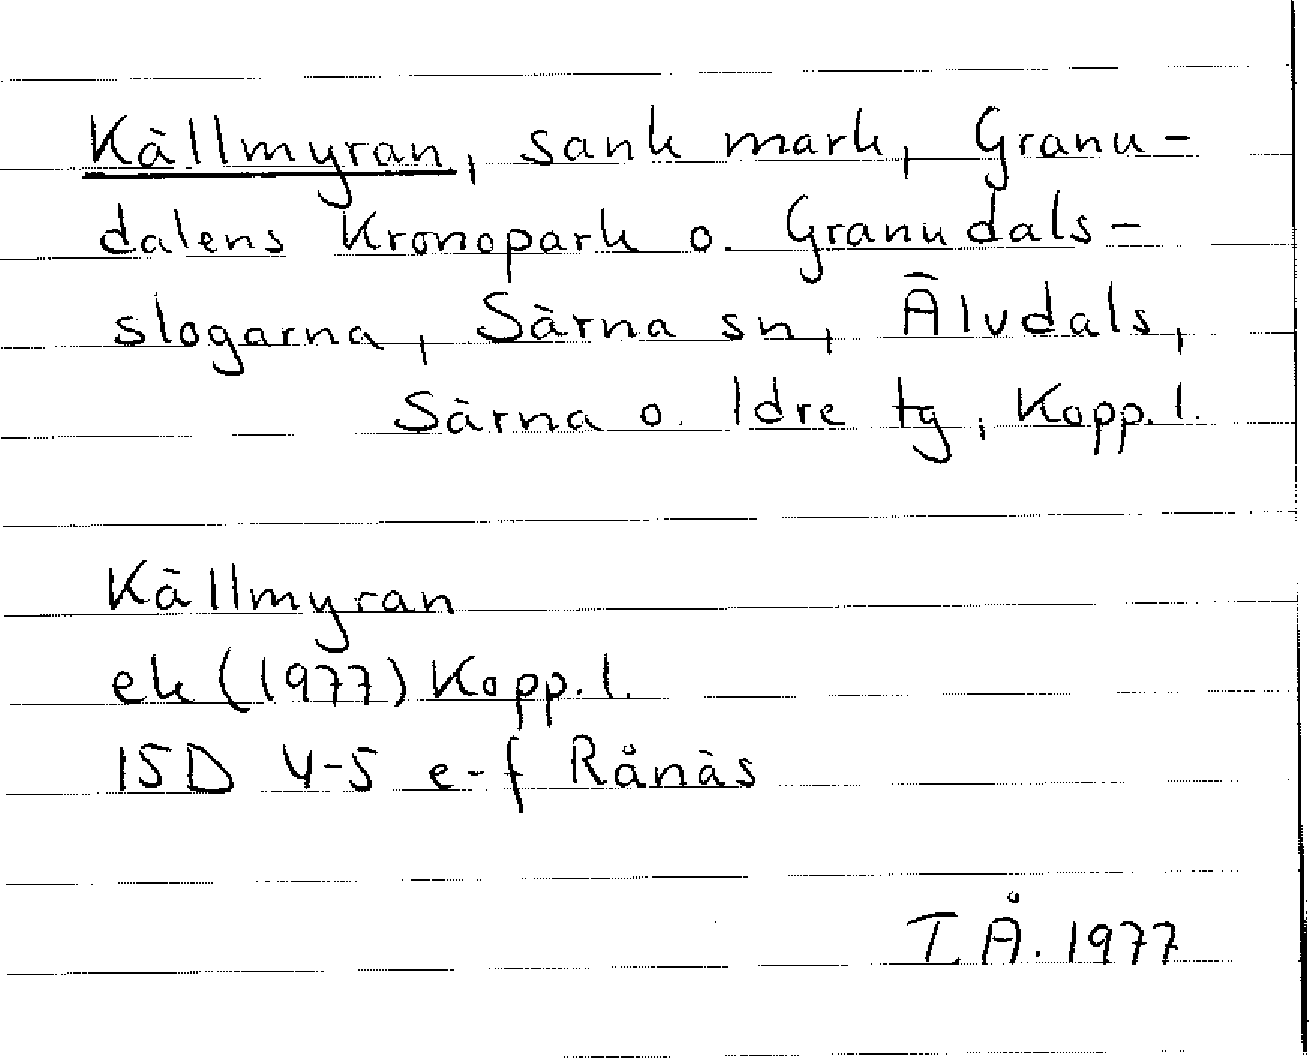 Källmyran, sank mark, Granu-
dalens Kronopark o. Granudals-
slogarna, Särna sn, Älvdals,
Särna o. Idre tg, Kopp. l.
Källmyran
ek (1977) Kopp. l.
15D 4-5 e-f Rånäs
I Å. 1977